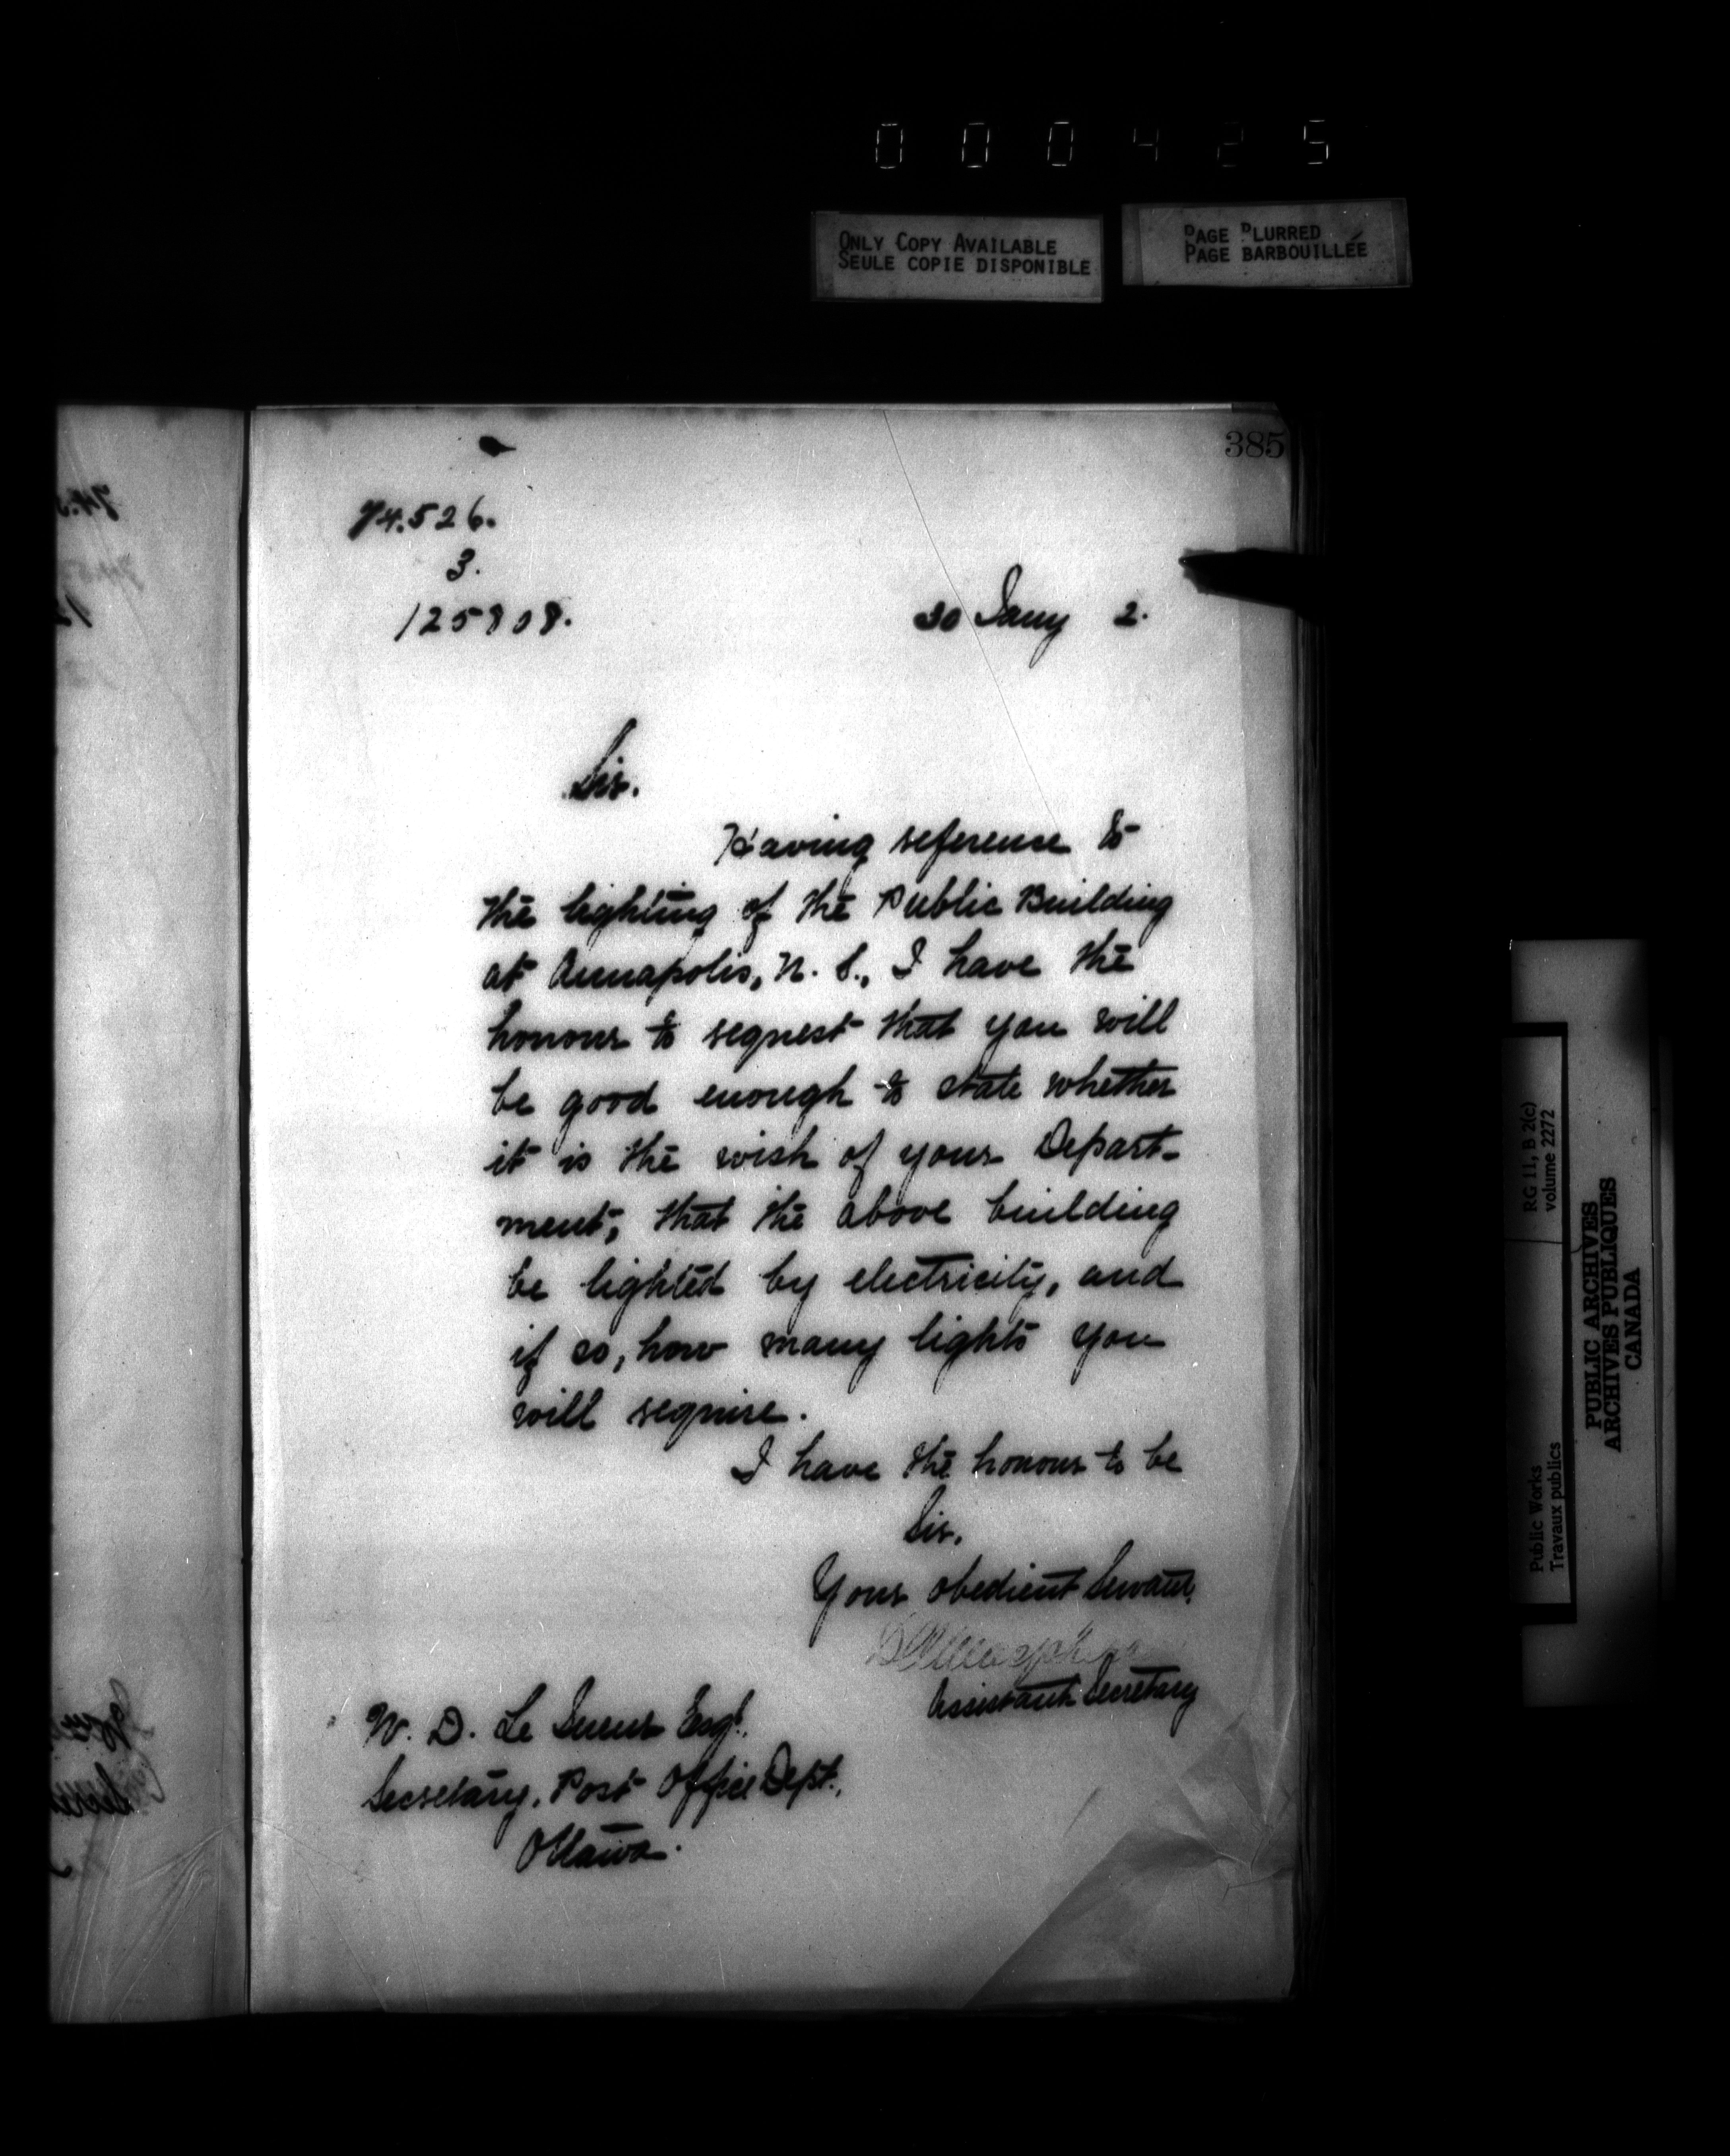 000425
ONLY COPY AVAILABLE
SEULE COPIE DISPONIBLE
PAGE BLURRED
PAGE BARBOUILLÉE
385
74.526.
3.
125808.
30 Jany 2.
Sir.
Having reference to
the lighting of the Public Building
at Annapolis, N. S., I have the
honour to request that you will
be good enough to state whether
it is the wish of your Depart-
ment, that the above building
be lighted by electricity, and
if so, how many lights you
will require.
I have the honour to be
Sir,
Your obedient Servant,
Assistant Secretary
W. D. Le Sueur Esqr.
Secretary, Post Office Dept.,
Ottawa.
RG 11, B 2(c)
volume 2272
Public Works
Travaux publics
PUBLIC ARCHIVES
ARCHIVES PUBLIQUES
CANADA